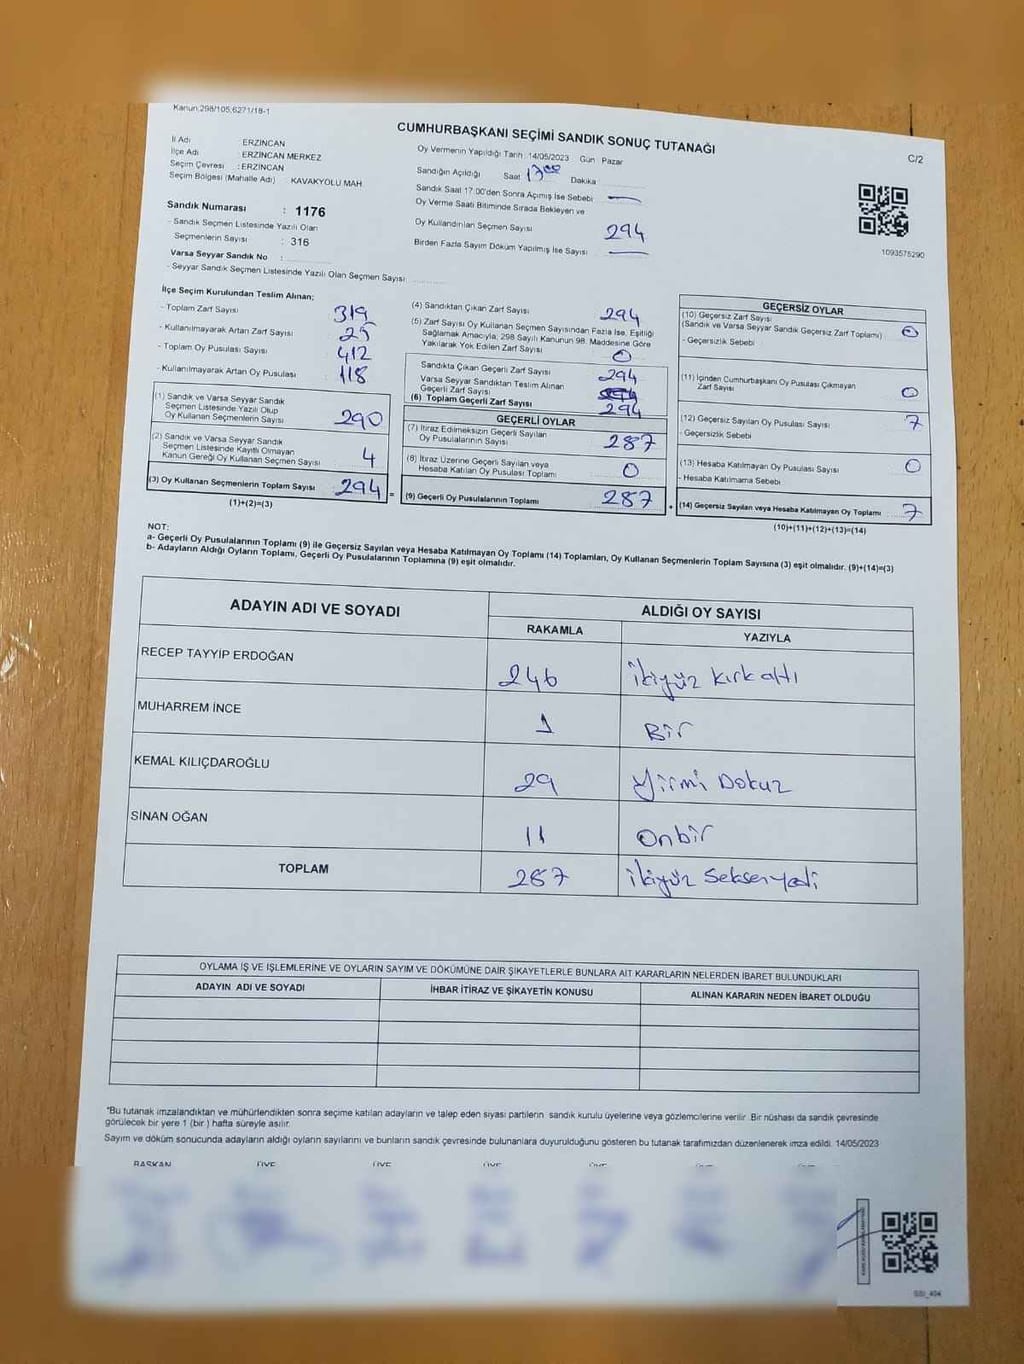 Kanun:298/105,6271/18-1
CUMHURBAŞKANI SEÇİMİ SANDIK SONUÇ TUTANAĞI
C/2
İl Adı : ERZİNCAN
İlçe Adı : ERZİNCAN MERKEZ
Seçim Çevresi : ERZİNCAN
Seçim Bölgesi (Mahalle Adı) : KAVAKYOLU MAH
Sandık Numarası : 1176
- Sandık Seçmen Listesinde Yazılı Olan
Seçmenlerin Sayısı : 316
Varsa Seyyar Sandık No :
- Seyyar Sandık Seçmen Listesinde Yazılı Olan Seçmen Sayısı
Oy Vermenin Yapıldığı Tarih : 14/05/2023 Gün : Pazar
Sandığın Açıldığı Saat 17:00 Dakika
Sandık Saat 17:00'den Sonra Açımış İse Sebebi
Oy Verme Saati Bitiminde Sırada Bekleyen ve
Oy Kullandırılan Seçmen Sayısı 294
Birden Fazla Sayım Döküm Yapılmış İse Sayısı
1093575290
İlçe Seçim Kurulundan Teslim Alınan;
- Toplam Zarf Sayısı 319
- Kullanılmayarak Artan Zarf Sayısı 25
- Toplam Oy Pusulası Sayısı 412
- Kullanılmayarak Artan Oy Pusulası 118
(1) Sandık ve Varsa Seyyar Sandık
Seçmen Listesinde Yazılı Olup
Oy Kullanan Seçmenlerin Sayısı 290
(2) Sandık ve Varsa Seyyar Sandık
Seçmen Listesinde Kayıtlı Olmayan
Kanun Gereği Oy Kullanan Seçmen Sayısı 4
(3) Oy Kullanan Seçmenlerin Toplam Sayısı 294 =
(1)+(2)=(3)
(4) Sandıktan Çıkan Zarf Sayısı 294
(5) Zarf Sayısı Oy Kullanan Seçmen Sayısından Fazla İse, Eşitliği
Sağlamak Amacıyla; 298 Sayılı Kanunun 98. Maddesine Göre
Yakılarak Yok Edilen Zarf Sayısı 0
Sandıkta Çıkan Geçerli Zarf Sayısı 294
Varsa Seyyar Sandıktan Teslim Alınan
Geçerli Zarf Sayısı
(6) Toplam Geçerli Zarf Sayısı 294
GEÇERLİ OYLAR
(7) İtiraz Edilmeksizin Geçerli Sayılan
Oy Pusulalarının Sayısı 287
(8) İtiraz Üzerine Geçerli Sayılan veya
Hesaba Katılan Oy Pusulası Toplamı 0
(9) Geçerli Oy Pusulalarının Toplamı 287 +
GEÇERSİZ OYLAR
(10) Geçersiz Zarf Sayısı
(Sandık ve Varsa Seyyar Sandık Geçersiz Zarf Toplamı) 0
- Geçersizlik Sebebi
(11) İçinden Cumhurbaşkanı Oy Pusulası Çıkmayan
Zarf Sayısı 0
(12) Geçersiz Sayılan Oy Pusulası Sayısı 7
- Geçersizlik Sebebi
(13) Hesaba Katılmayan Oy Pusulası Sayısı 0
- Hesaba Katılmama Sebebi
(14) Geçersiz Sayılan veya Hesaba Katılmayan Oy Toplamı 7
(10)+(11)+(12)+(13)=(14)
NOT:
a- Geçerli Oy Pusulalarının Toplamı (9) ile Geçersiz Sayılan veya Hesaba Katılmayan Oy Toplamı (14) Toplamları, Oy Kullanan Seçmenlerin Toplam Sayısına (3) eşit olmalıdır. (9)+(14)=(3)
b- Adayların Aldığı Oyların Toplamı, Geçerli Oy Pusulalarının Toplamına (9) eşit olmalıdır.
ADAYIN ADI VE SOYADI ALDIĞI OY SAYISI
RAKAMLA YAZIYLA
RECEP TAYYİP ERDOĞAN 246 ikiyüz kırkaltı
MUHARREM İNCE 1 Bir
KEMAL KILIÇDAROĞLU 29 Yirmi Dokuz
SİNAN OĞAN 11 Onbir
TOPLAM 287 ikiyüz Seksenyedi
OYLAMA İŞ VE İŞLEMLERİNE VE OYLARIN SAYIM VE DÖKÜMÜNE DAİR ŞİKAYETLERLE BUNLARA AİT KARARLARIN NELERDEN İBARET BULUNDUKLARI
ADAYIN ADI VE SOYADI İHBAR İTİRAZ VE ŞİKAYETİN KONUSU ALINAN KARARIN NEDEN İBARET OLDUĞU
*Bu tutanak imzalandıktan ve mühürlendikten sonra seçime katılan adayların ve talep eden siyasi partilerin sandık kurulu üyelerine veya gözlemcilerine verilir. Bir nüshası da sandık çevresinde
görülecek bir yere 1 (bir ) hafta süreyle asılır.
Sayım ve döküm sonucunda adayların aldığı oyların sayılarını ve bunların sandık çevresinde bulunanlara duyurulduğunu gösteren bu tutanak tarafımızdan düzenlenerek imza edildi. 14/05/2023
BAŞKAN ÜYE ÜYE ÜYE ÜYE ÜYE ÜYE